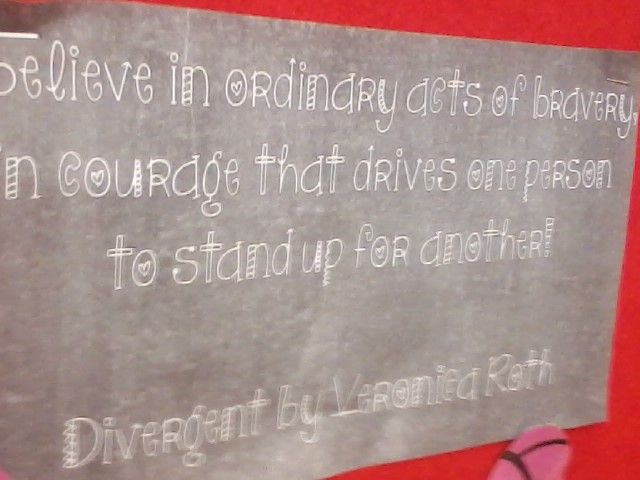 believe in ordinary acts of bravery,
in courage that drives one person
to stand up for another!
Divergent by Veronica Roth